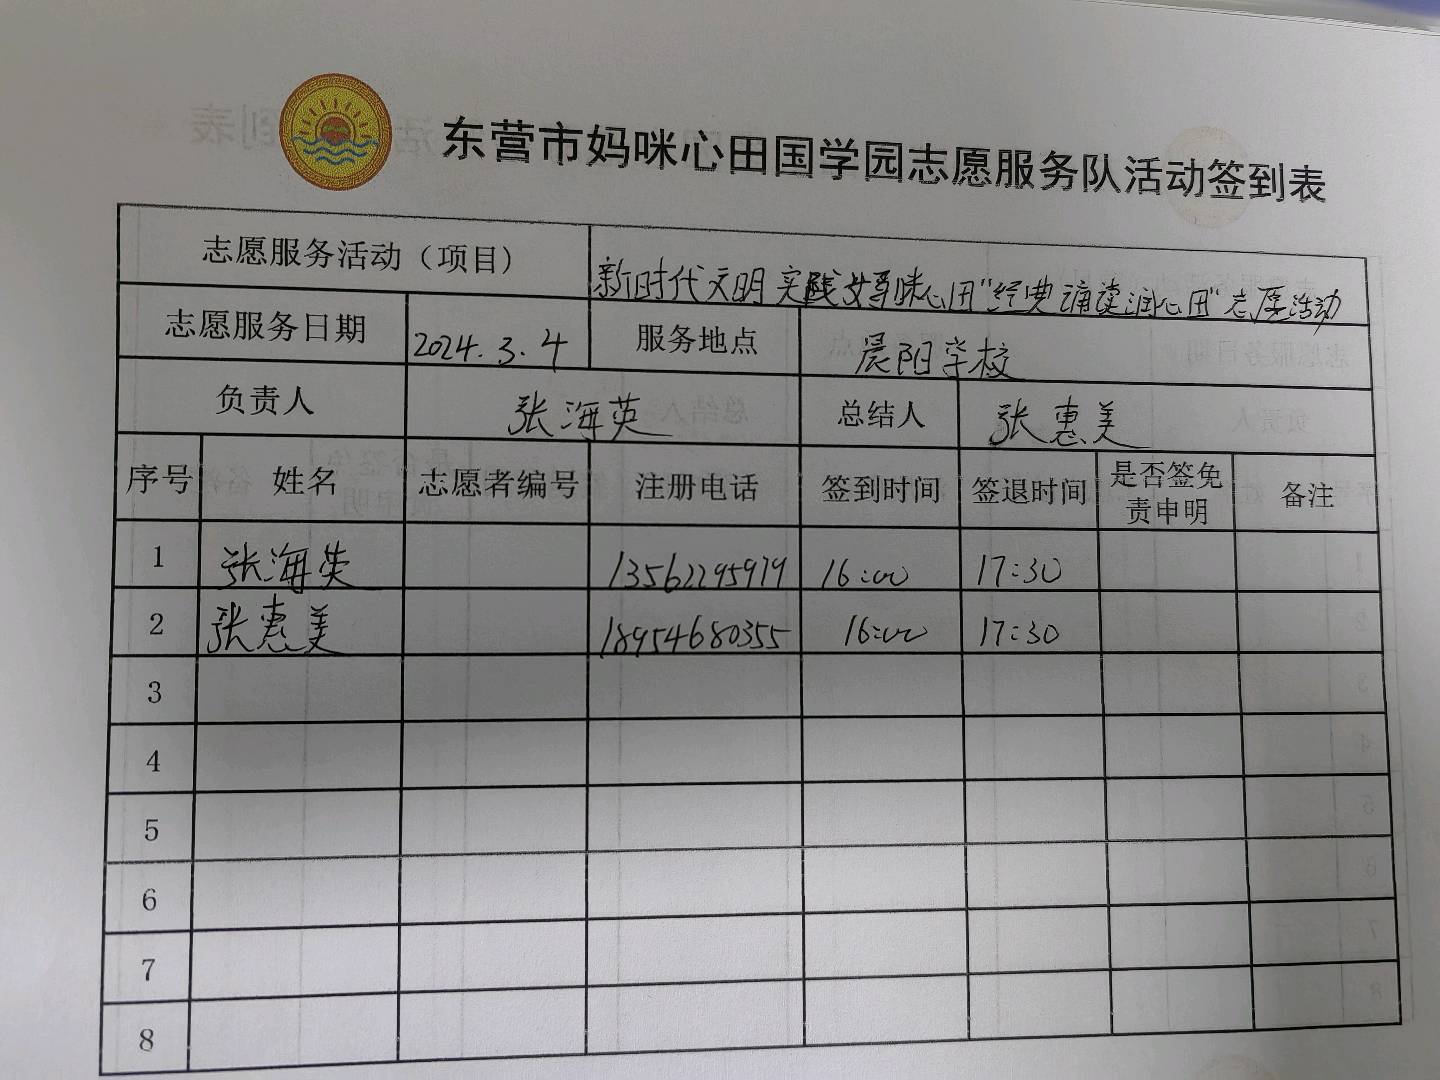 东营市妈咪心田国学园志愿服务队活动签到表
志愿服务活动（项目） 新时代文明实践 心田“经典诵读润心田”志愿活动
志愿服务日期 2024.3.4 服务地点 晨阳学校
负责人 张海英 总结人 张惠美
序号 姓名 志愿者编号 注册电话 签到时间 签退时间 是否签免责申明 备注
1 张海英 13562295979 16:00 17:30
2 张惠美 18954680355 16:00 17:30
3
4
5
6
7
8